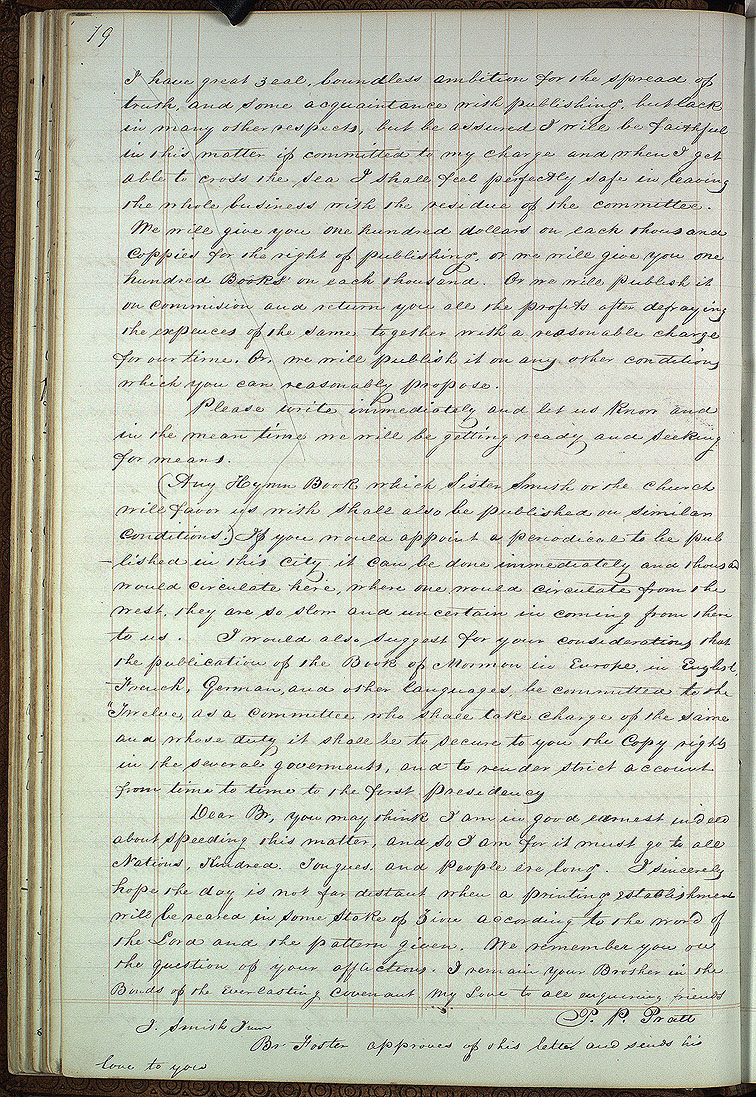 79
I have great zeal, boundless ambition for the spread of
truth, and some acquaintance with publishing, but lack
in many other respects, but be assured I will be faithful
in this matter if committed to my charge and when I get
able to cross the sea I shall feel perfectly safe in leaving
the whole business with the residue of the committee.
We will give you one hundred dollars on each thousand
Coppies for the right of publishing, or we will give you one
hundred Books on each thousand. Or we will publish it
on commision and return you all the profits after defraying
the expences of the same together with a reasonable charge
for our time. Or, we will publish it on any other conditions
which you can reasonably propose.
Please write immediately and let us know and
in the mean time we will be getting ready and seeking
for means.
(Any Hymn Book which Sister Smith or the church
will favor us with shall also be published on similar
conditions.) If you would appoint a periodical to be pub
lished in this city it can be done immediately and thousands
would circulate here, where one would circulate from the
west, they are so slow and uncertain in coming from there
to us. I would also suggest for your consideration, that
the publication of the Book of Mormon in Europe, in English,
French, German, and other languages, be committed to the
Twelve, as a committee who shall take charge of the same
and whose duty it shall be to secure to you the Copy rights
in the several goverments, and to render strict account
from time to time to the first presidency
Dear Br, you may think I am in good earnest indeed
about speeding this matter, and so I am for it must go to all
Nations, Kindred, Tongues, and People ere long. I sincerely
hope the day is not far distant when a printing establishment
will be reared in some Stake of Zion according to the word of
the Lord and the pattern given. We remember you on
the question of your afflictions. I remain your Brother in the
Bonds of the Everlasting Covenant My Love to all enquiring friends
P. P. Pratt
J. Smith Jun
Br Foster approves of this letter and sends his
love to you